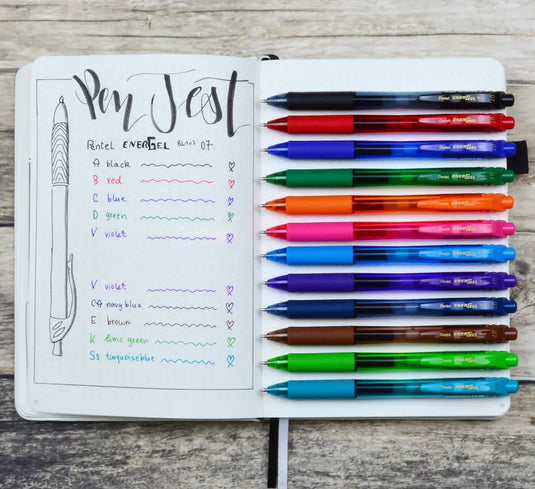 Pen Test
Pentel ENERGEL BL107 07
A black
B red
C blue
D green
V violet
V violet
CA navy blue
E brown
K lime green
S3 turquoise blue
Pentel ENERGEL
Pentel ENERGEL
Pentel ENERGEL
Pentel ENERGEL
Pentel ENERGEL
Pentel ENERGEL
Pentel ENERGEL
Pentel ENERGEL
Pentel ENERGEL
Pentel ENERGEL
Pentel ENERGEL
Pentel ENERGEL